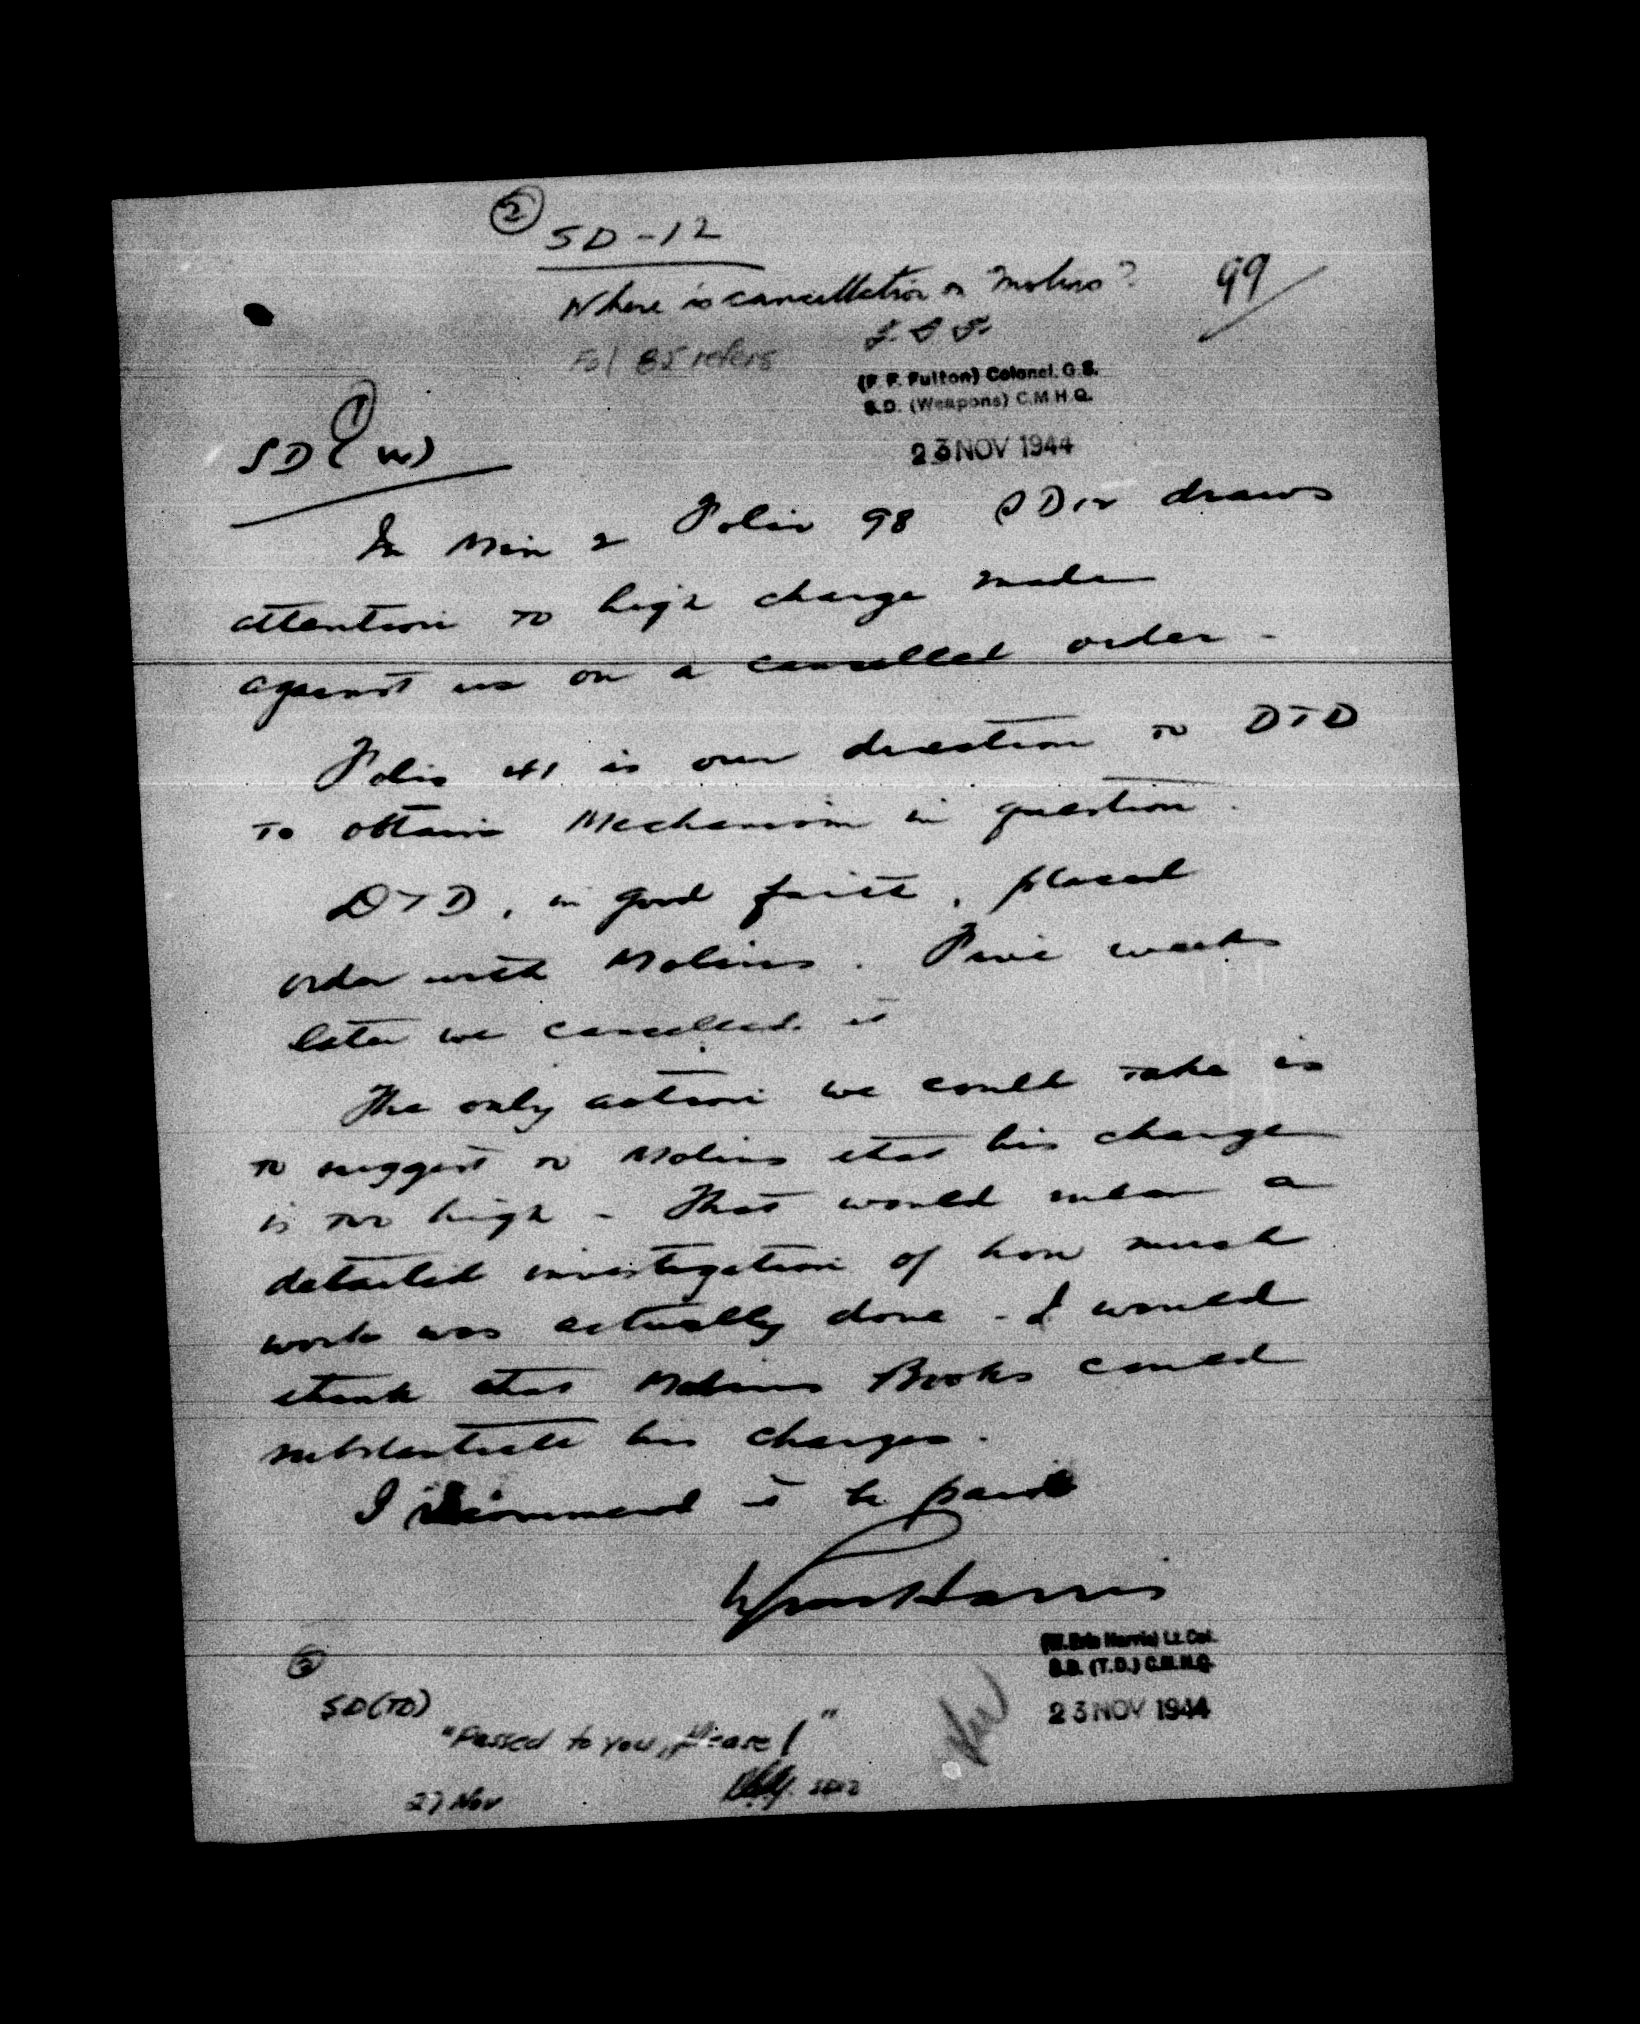 ②
SD-12
Where is cancellation on Molins?
99
Fol 85 refers
(F. F. Fulton) Colonel. G.S.
S.D. (Weapons) C.M.H.Q.
23 NOV 1944
①
SD(W)
In Min 2 Folio 98 SD12 draws
attention to high charge made
against us on a cancelled order -
Folio 41 is our direction to DTD
to obtain Mechanism in question.
DTD, in good faith, placed
order with Molins. Five weeks
later we cancelled it
The only action we could take is
to suggest to Molins that his charge
is too high - That would mean a
detailed investigation of how much
work was actually done - I would
think that Molins Books could
substantiate his charges.
I recommend it be paid
(W. Eric Harris) Lt. Col.
S.D. (T.D.) C.M.H.Q.
23 NOV 1944
③
SD(TD)
"Passed to you, please!"
27 Nov